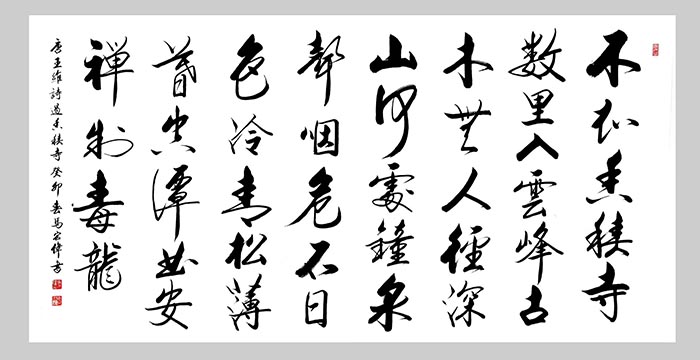 不知香積寺
数里入雲峰古
木無人徑深
山何處鐘泉
聲咽危石日
色冷青松薄
暮空潭曲安
禅制毒龍
唐王維詩過香積寺 癸卯春馬偉书